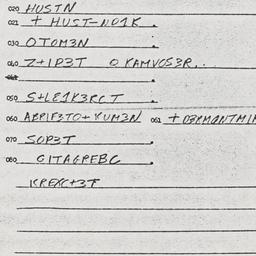 020 HUSTN
021 + HUST-NO1K
030 OTOM3N
040 Z+IP3T O KAMVOS3R
050 S+LE1K3RCT
060 ABPIF3TO+ KUM3N 061 +
070 SOP3T
080 CITAGPEBC
KREXC+3T